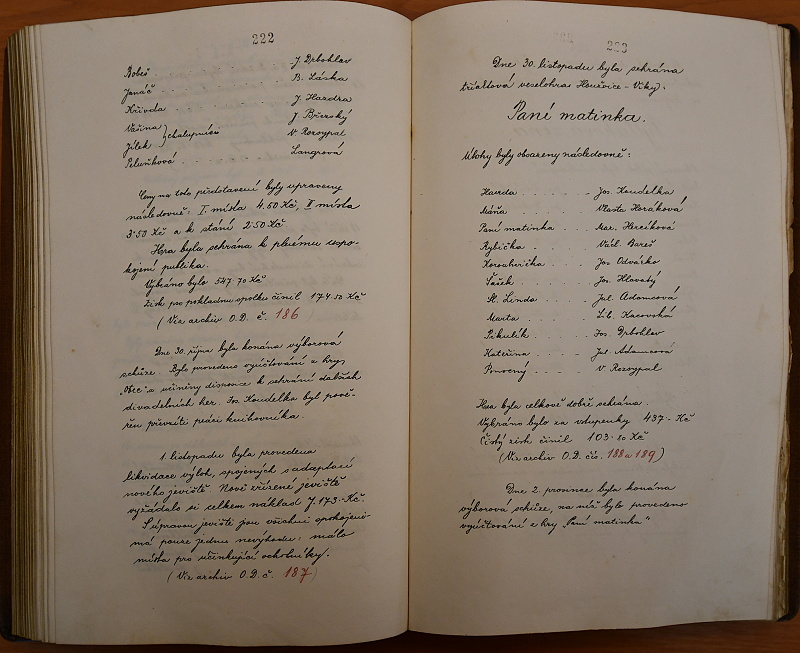 222
Bobeš . . . . . . . J. Drbohlav
Janáč . . . . . . . B. Láska
Křivda - - - - - - - J. Hazdra
Vašina } chalupníci J. Břerský
Jílek } V. Rozsypal
Peluňková . . . . . Langrová
Ceny na toto představení byly upraveny
následovně: I. místa 4.60 Kč, II místa
3.50 Kč a k stání 2.50 Kč.
Hra byla sehrána k plnému uspo-
kojení publika.
Vybráno bylo 547.70 Kč
Zisk pro pokladnu spolku činil 174.50 Kč
(Viz archiv O.D. č. 186
Dne 30. října byla konána výborová
schůze. Bylo provedeno vyúčtování z hry
"Obec" a učiněny disposice k sehrání dalších
divadelních her. Jos. Koudelka byl pově-
řen převzíti práci knihovníka.
1. listopadu byla provedena
likvidace výloh, spojených s adaptací
nového jeviště. Nově zřízené jeviště
vyžádalo si celkem náklad 7.173.- Kč.
S úpravou jeviště jsou všichni spokojeni
má pouze jednu nevýhodu: málo
místa pro účinkující ochotníky.
(Viz archiv O.D. č. 187)
223
Dne 30. listopadu byla sehrána
tříaktová veselohra Heuřvice-Viky:
Paní matinka.
Úlohy byly obsazeny následovně:
Havrda . . . . . - - Jos. Koudelka
Máňa . . . . . - - Vlasta Horáková
Paní matinka . . - - Mar. Hercíková
Rybička . . . . - - Václ. Bareš
Korouhvička . . - - Jos. Odvárko
Šašek . . . . . - - Jos. Hlavatý
Sl. Linda . . . - - Jul. Adamcová
Marta . . . . . - - Lib. Kacovská
Pikulík . . . . - - Jos. Drbohlav
Kateřina . . . . - - Jul. Adamcová
Ponocný . . . . - - V. Rozsypal
Hra byla celkově dobře sehrána.
Vybráno bylo za vstupenky 437.- Kč
Čistý zisk činil 103.10 Kč
(Viz archiv O.D. čís. 188 a 189)
Dne 2. prosince byla konána
výborová schůze, na níž bylo provedeno
vyúčtování z hry "Paní matinka"